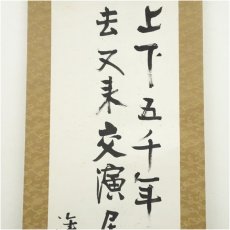 上下五千年
去又来交演